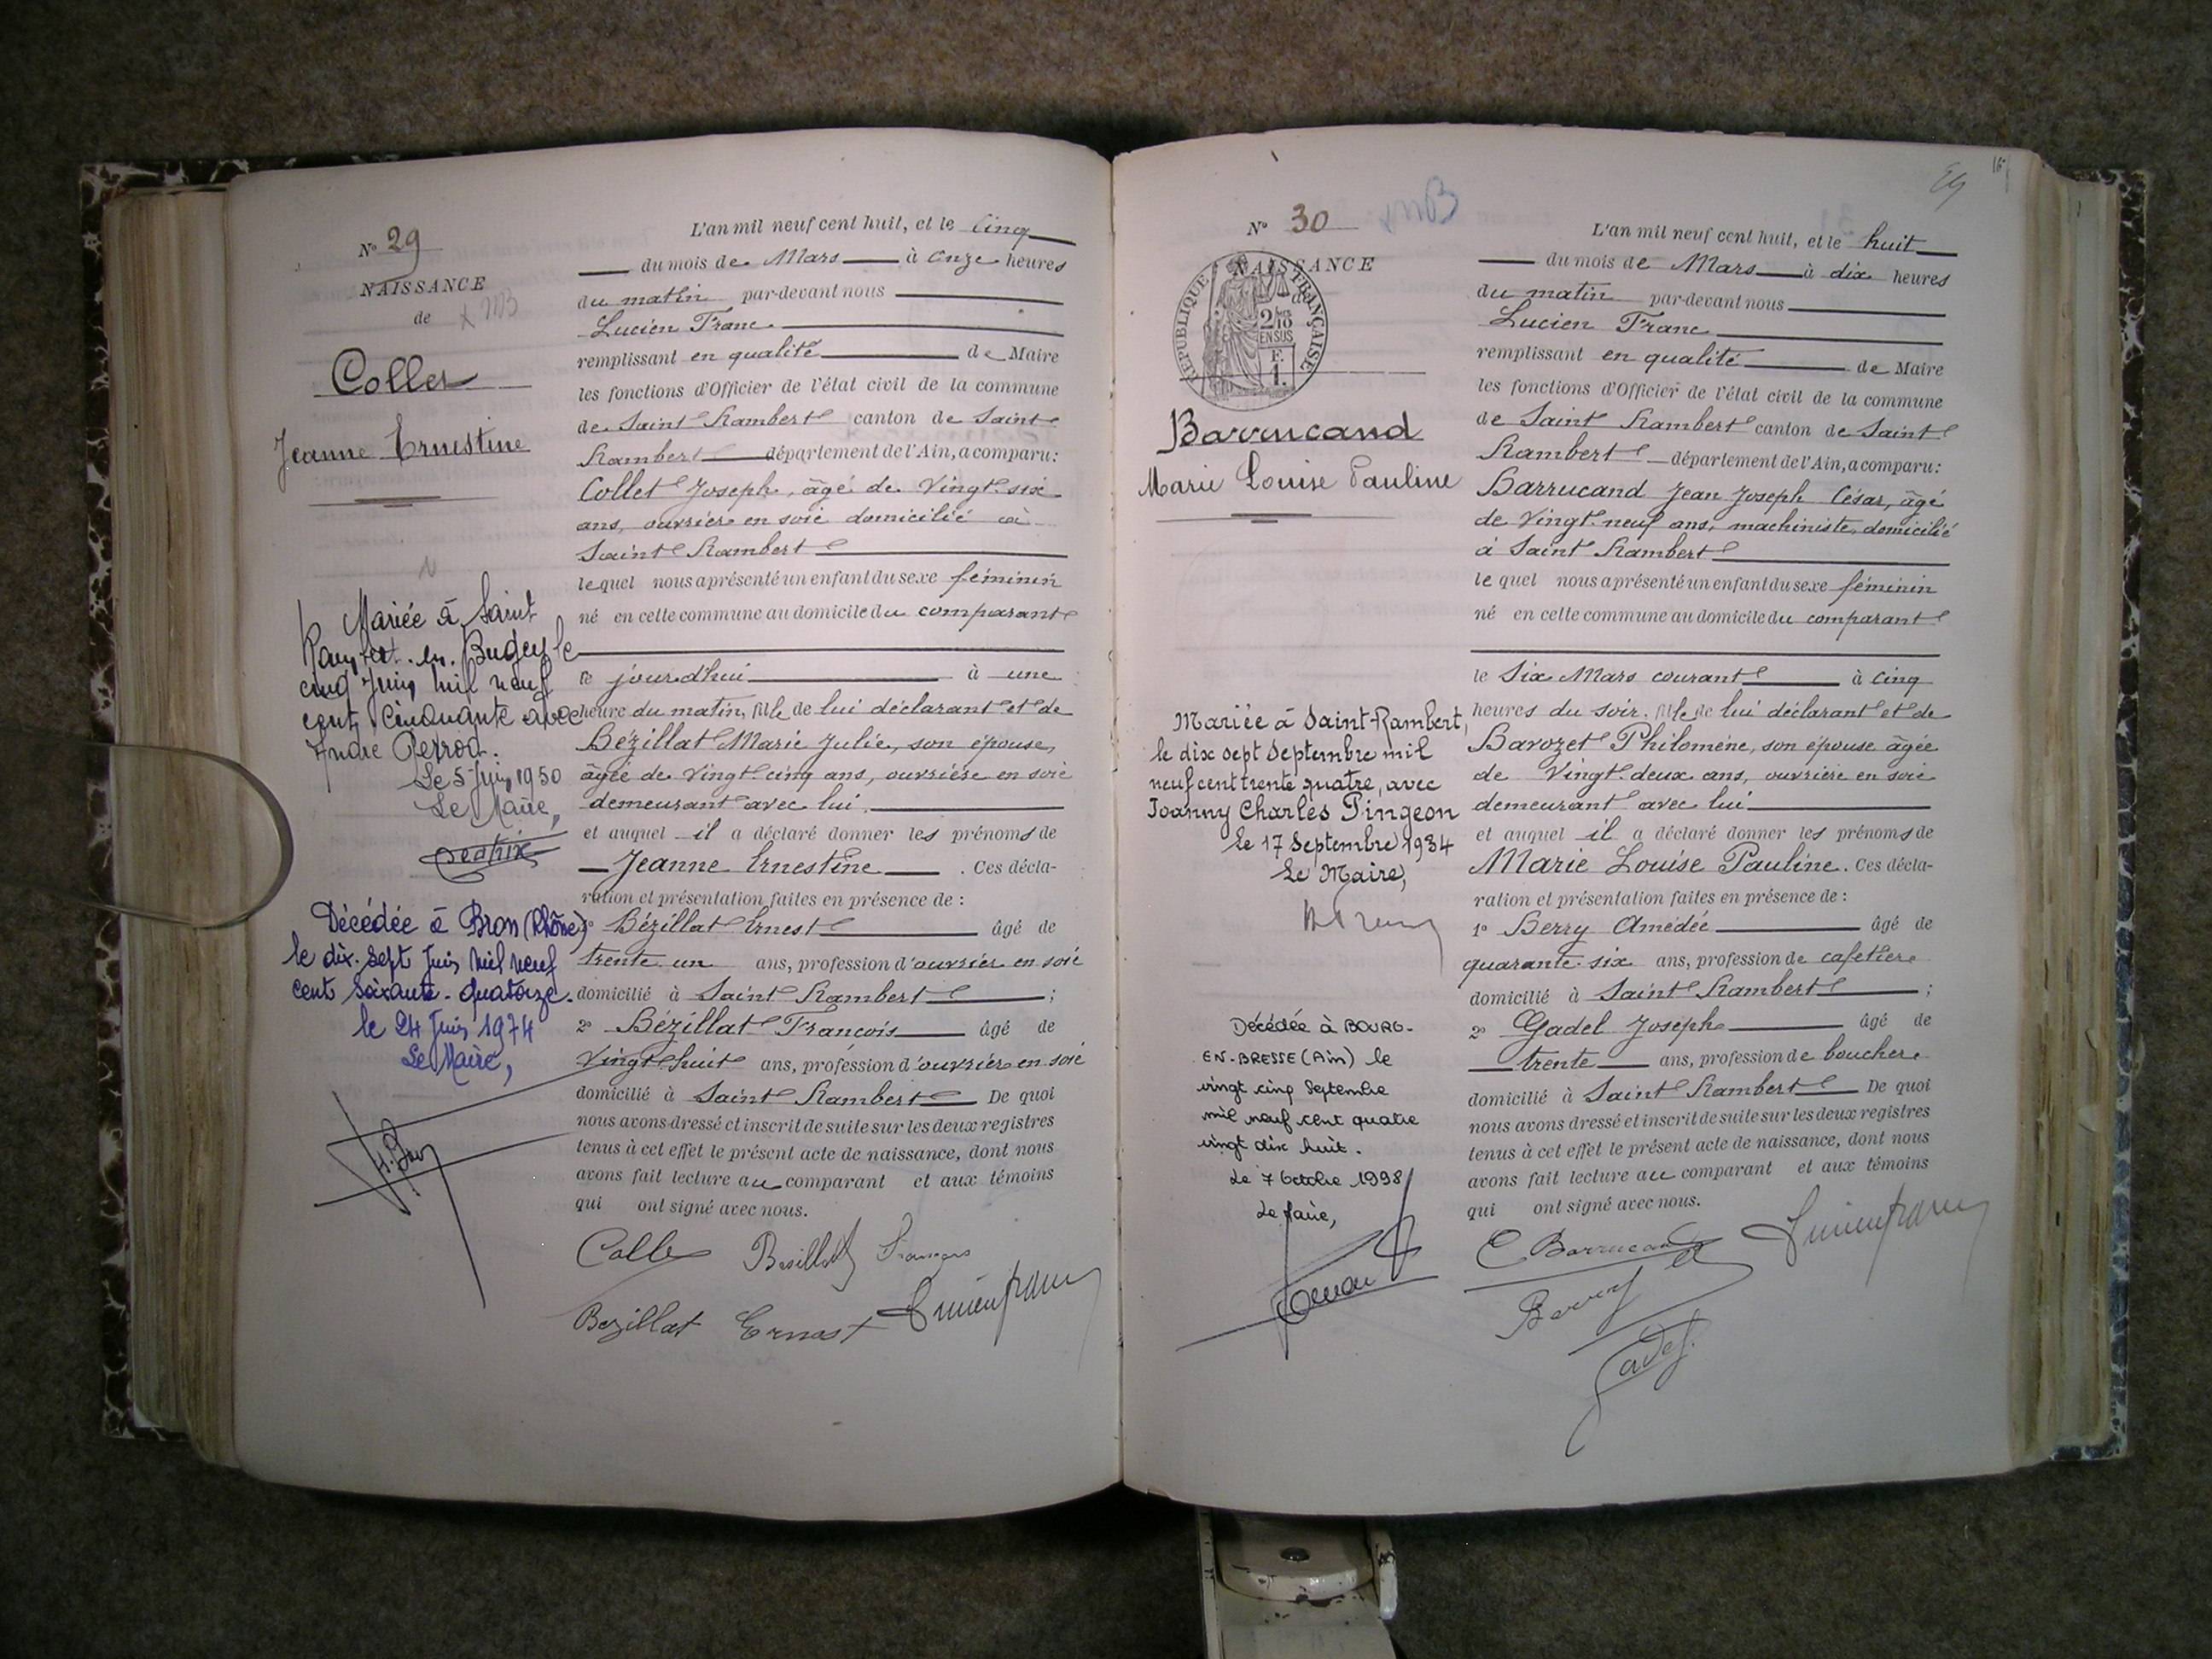 N° 29
NAISSANCE
de
Collet
Jeanne Ernestine
Mariée à Saint
Rambert-en-Bugey le
cinq Juin mil neuf
cent cinquante avec
André Perrod.
Le 5 Juin 1950
Le Maire,
Décédée à Bron (Rhône)
le dix-sept Juin mil neuf
cent soixante-quatorze.
le 24 Juin 1974
Le Maire,
L'an mil neuf cent huit, et le cinq
du mois de Mars à onze heures
du matin par-devant nous
Lucien Franc
remplissant en qualité de Maire
les fonctions d'Officier de l'état civil de la commune
de Saint Rambert canton de Saint
Rambert département de l'Ain, a comparu:
Collet Joseph, âgé de vingt-six
ans, ouvrier en soie domicilié à
Saint Rambert
lequel nous a présenté un enfant du sexe féminin
né en cette commune au domicile du comparant
ce jourd'hui à une
heure du matin, fille de lui déclarant et de
Bézillat Marie Julie, son épouse,
âgée de vingt-cinq ans, ouvrière en soie
demeurant avec lui
et auquel il a déclaré donner les prénoms de
Jeanne Ernestine. Ces décla-
ration et présentation faites en présence de :
1° Bézillat Ernest âgé de
trente un ans, profession d'ouvrier en soie
domicilié à Saint Rambert ;
2° Bézillat François âgé de
vingt-huit ans, profession d'ouvrier en soie
domicilié à Saint Rambert De quoi
nous avons dressé et inscrit de suite sur les deux registres
tenus à cet effet le présent acte de naissance, dont nous
avons fait lecture au comparant et aux témoins
qui ont signé avec nous.
Collet Bezillat François
Bezillat Ernest Lucien Franc
16
N° 30
NAISSANCE
de
RÉPUBLIQUE FRANÇAISE
2/10 EN SUS
F.
1.
Barrucand
Marie Louise Pauline
Mariée à Saint-Rambert,
le dix sept Septembre mil
neuf cent trente quatre, avec
Joanny Charles Pingeon
Le 17 Septembre 1934
Le Maire,
Décédée à BOURG-
EN-BRESSE (Ain) le
vingt cinq Septembre
mil neuf cent quatre
vingt dix huit.
Le 7 Octobre 1998
Le Maire,
L'an mil neuf cent huit, et le huit
du mois de Mars à dix heures
du matin par-devant nous
Lucien Franc
remplissant en qualité de Maire
les fonctions d'Officier de l'état civil de la commune
de Saint Rambert canton de Saint
Rambert département de l'Ain, a comparu:
Barrucand Jean Joseph César, âgé
de vingt-neuf ans, machiniste, domicilié
à Saint Rambert
lequel nous a présenté un enfant du sexe féminin
né en cette commune au domicile du comparant
le Six Mars courant à cinq
heures du soir, fille de lui déclarant et de
Barozet Philomène, son épouse âgée
de vingt-deux ans, ouvrière en soie
demeurant avec lui
et auquel il a déclaré donner les prénoms de
Marie Louise Pauline. Ces décla-
ration et présentation faites en présence de :
1° Berry Amédée âgé de
quarante-six ans, profession de cafetier
domicilié à Saint Rambert ;
2° Gadel Joseph âgé de
trente ans, profession de boucher
domicilié à Saint Rambert De quoi
nous avons dressé et inscrit de suite sur les deux registres
tenus à cet effet le présent acte de naissance, dont nous
avons fait lecture au comparant et aux témoins
qui ont signé avec nous.
C Barrucand Lucien Franc
Berry
Gadel